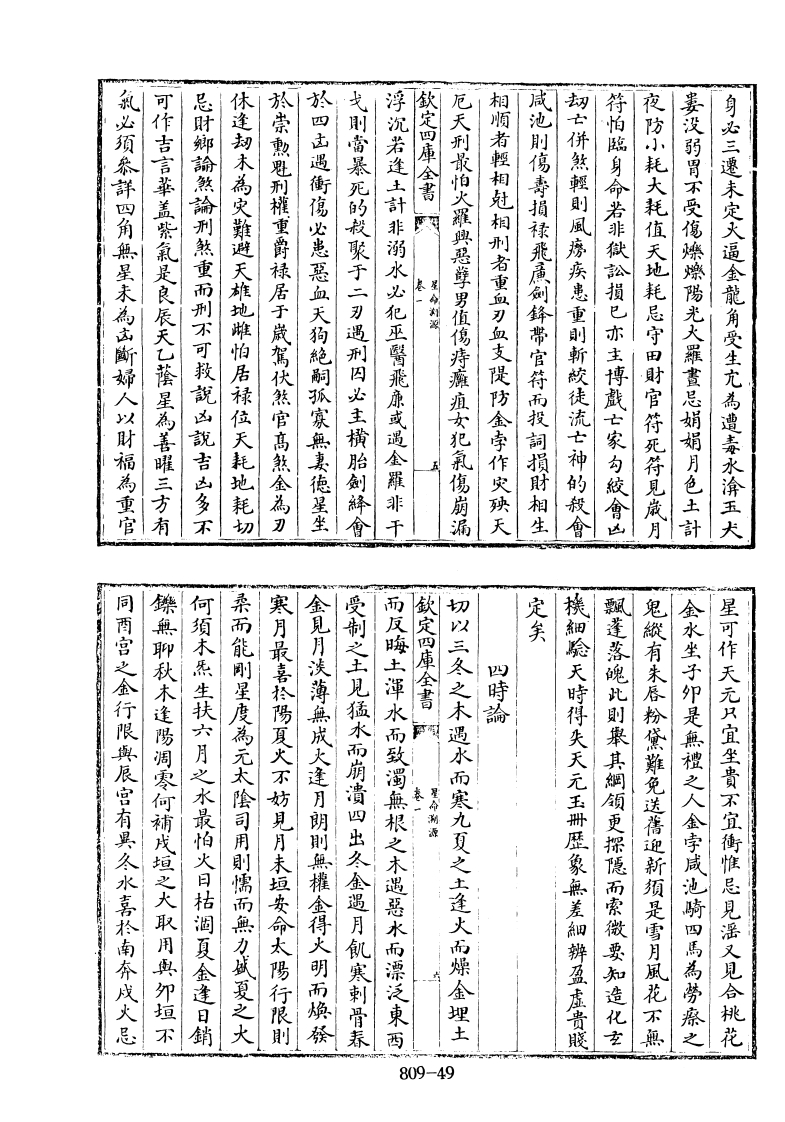 身必三遷未定火逼金龍角受生亢為遭毒水渰玉犬
婁没弱胃不受傷爍爍陽光火羅晝忌娟娟月色土計
夜防小耗大耗值天地耗忌守田財官符死符見嵗月
符怕臨身命若非獄訟損已亦主博戲亡家勾絞會凶
劫亡併煞輕則風癆疾患重則斬絞徒流亡神的殺會
咸池則傷壽損禄飛㢘劍鋒帶官符而投詞損財相生
相順者輕相尅相刑者重血刃血支隄防金孛作災殃天
厄天刑最怕火羅興惡孽男值傷痔癰疽女犯氣傷崩漏
欽定四庫全書
星命溯源
卷一
五
浮沉若逢土計非溺水必犯巫醫飛㢘或遇金羅非干
戈則當暴死的殺聚于二刃遇刑囚必主橫胎劍絳會
於四凶遇衝傷必患惡血天狗絶嗣孤寡無妻德星坐
於崇勲魁刑權重爵禄居于嵗駕伏煞官髙煞金為刃
休逢刼木為災難避天雄地雌怕居禄位天耗地耗切
忌財鄉論煞論刑煞重而刑不可救説凶説吉凶多不
可作吉言華盖紫氣是良辰天乙蔭星為善曜三方有
氣必須叅詳四角無星未為凶斷婦人以財福為重官
星可作天元只宜坐貴不宜衝惟忌見滛又見合桃花
金水坐子卯是無禮之人金孛咸池騎四馬為勞瘵之
鬼縱有朱唇粉黛難免送舊迎新須是雪月風花不無
飄蓬落魄此則舉其綱領更探隱而索微要知造化𤣥
機細驗天時得失天元玉冊歴象無差細辨盈虚貴賤
定矣
四時論
切以三冬之木遇水而寒九夏之土逢火而燥金埋土
欽定四庫全書
星命溯源
卷一
六
而反晦土渾水而致濁無根之木遇惡水而漂泛東西
受制之土見猛水而崩潰四出冬金遇月飢寒刺骨春
金見月淡薄無成火逢月朗則無權金得火明而煥發
寒月最喜扵陽夏火不妨見月未垣安命太陽行限則
柔而能剛星度為元太陰司用則懦而無力盛夏之火
何須木炁生扶六月之水最怕火日枯涸夏金逢日銷
鑠無聊秋木逢陽凋零何補戌垣之火取用與卯垣不
同酉宫之金行限與辰宫有異冬水喜扵南奔戌火忌
809-49